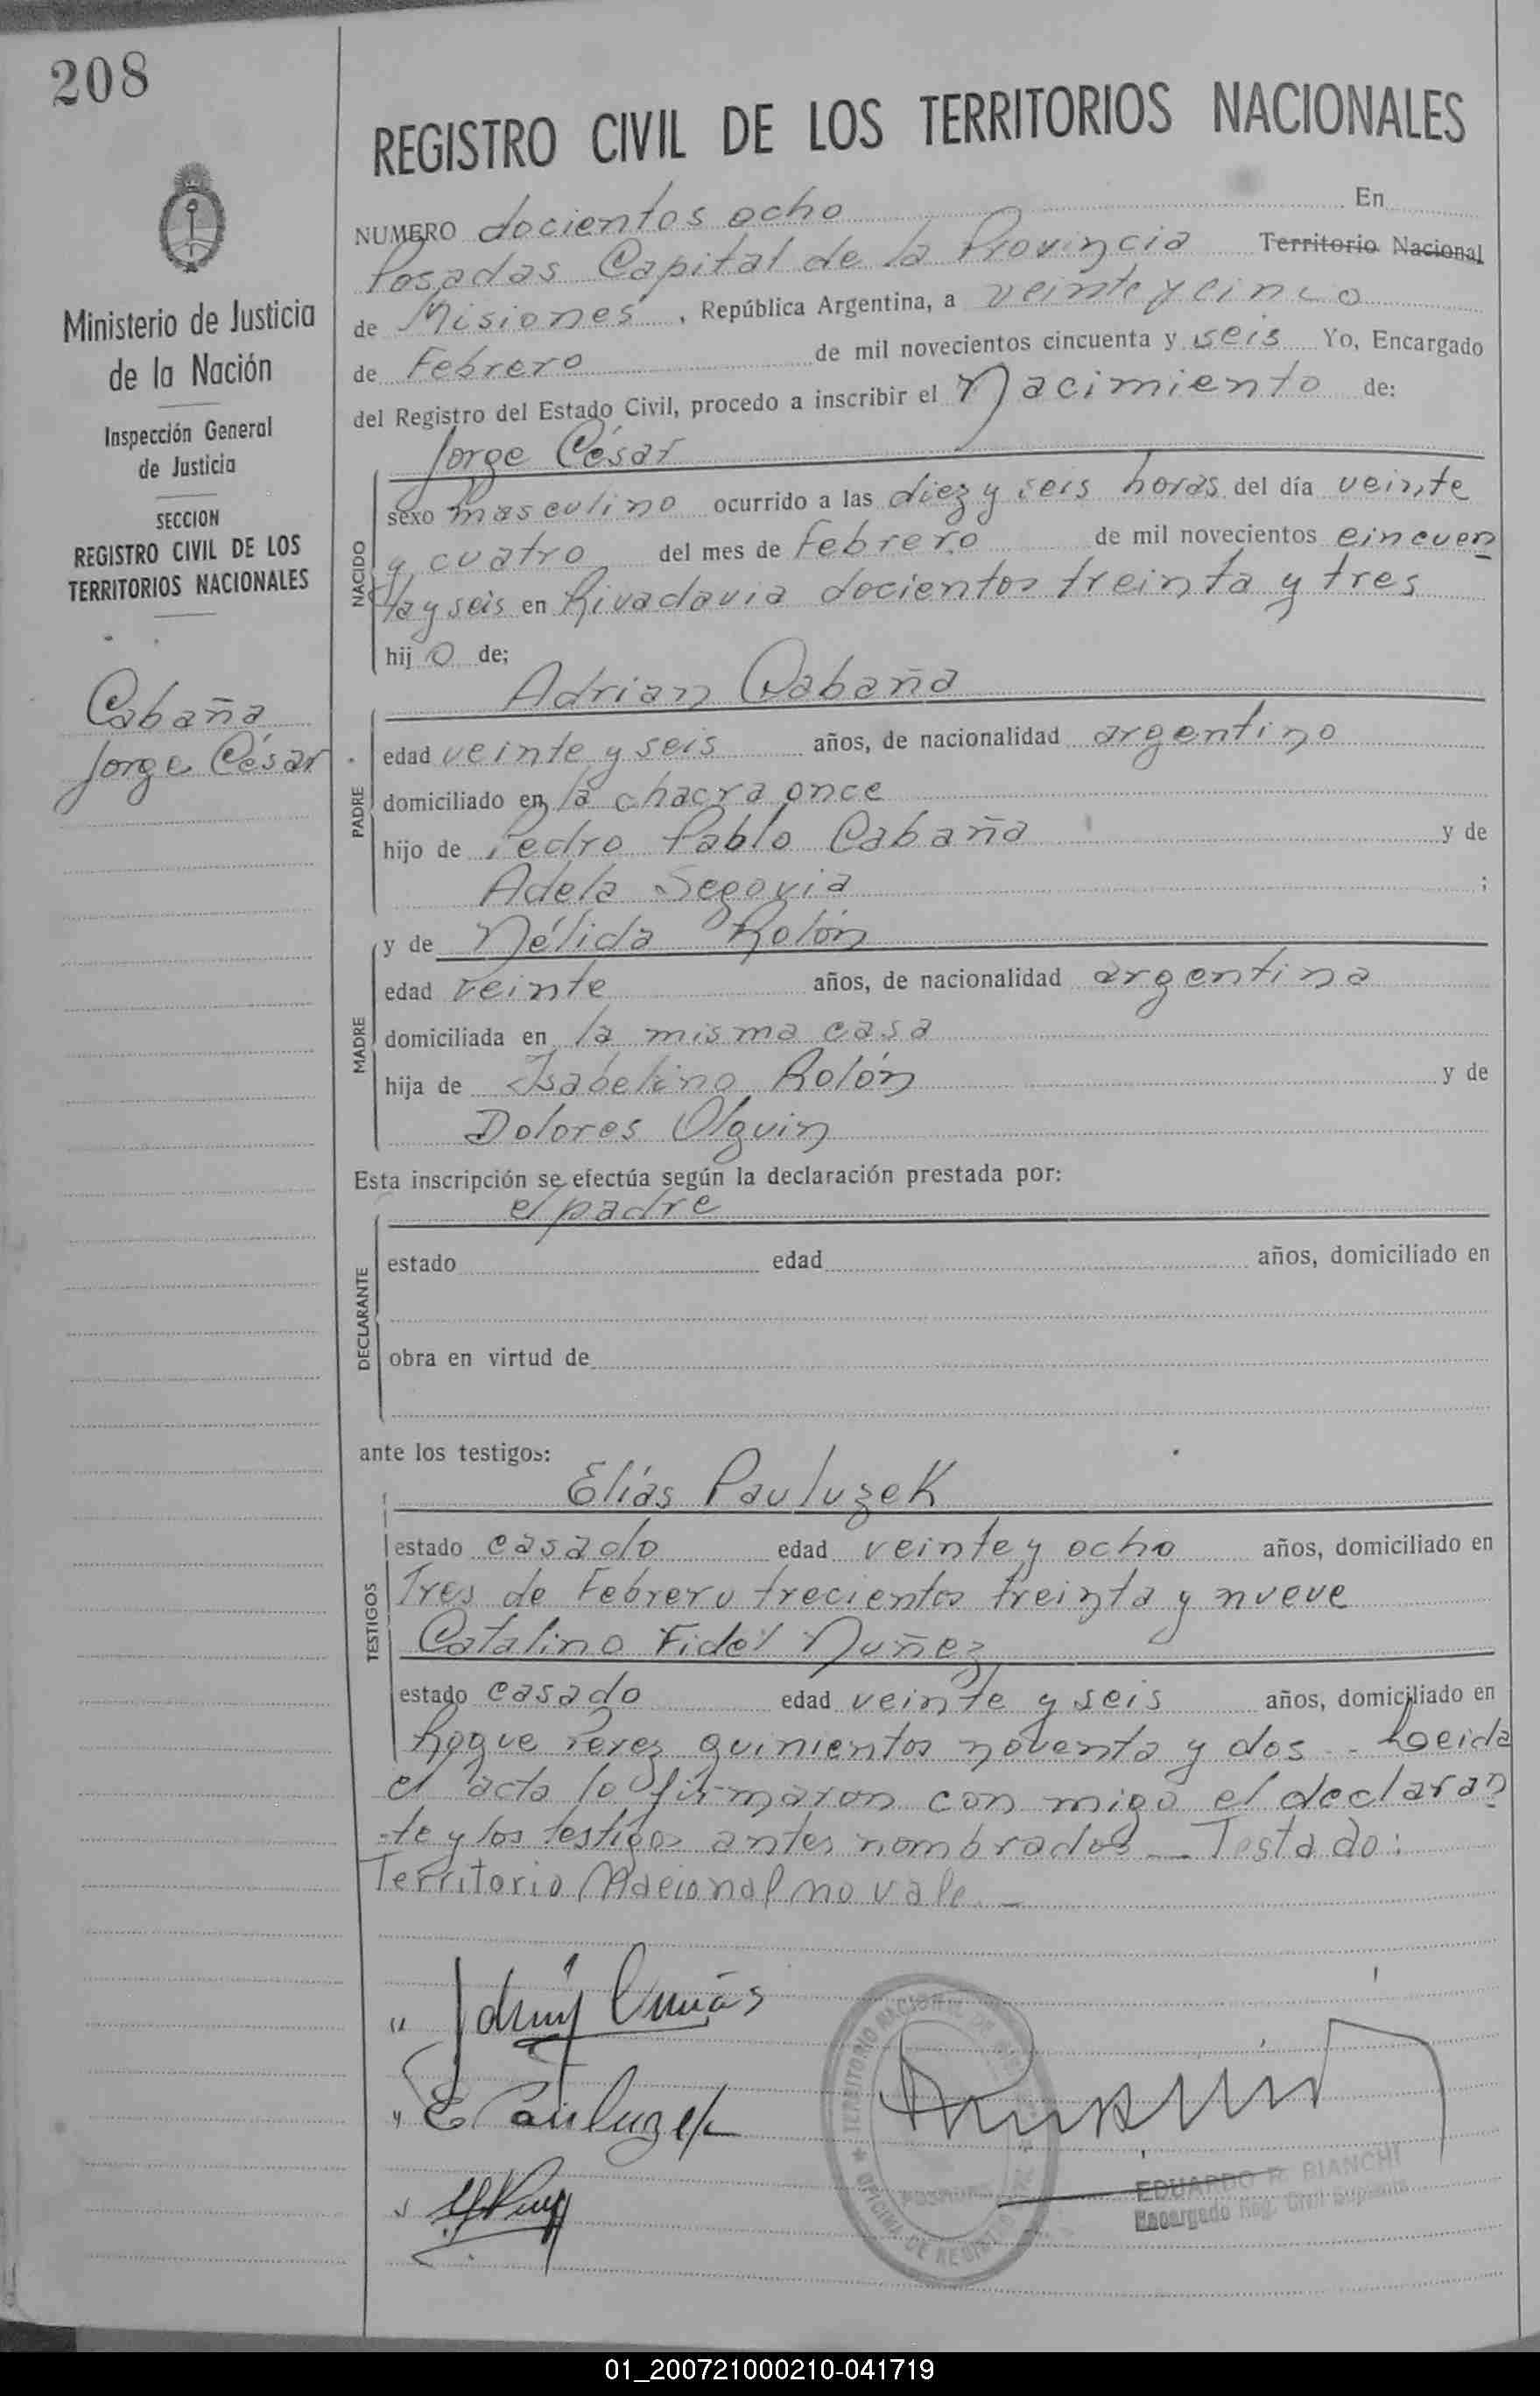 208
Ministerio de Justicia
de la Nación
Inspección General
de Justicia
SECCION
REGISTRO CIVIL DE LOS
TERRITORIOS NACIONALES
Cabaña
Jorge César
REGISTRO CIVIL DE LOS TERRITORIOS NACIONALES
NUMERO docientos ocho En
Posadas Capital de la Provincia Territorio Nacional
de Misiones, República Argentina, a veinte y cinco
de Febrero de mil novecientos cincuenta y seis Yo, Encargado
del Registro del Estado Civil, procedo a inscribir el Nacimiento de:
Jorge César
NACIDO
sexo masculino ocurrido a las diez y seis horas del día veinte
y cuatro del mes de Febrero de mil novecientos cincuen
ta y seis en Rivadavia docientos treinta y tres
hijo de;
Adrian Cabaña
PADRE
edad veinte y seis años, de nacionalidad argentino
domiciliado en la chacra once
hijo de Pedro Pablo Cabaña y de
Adela Segovia ;
y de Nélida Rolón
MADRE
edad veinte años, de nacionalidad argentina
domiciliada en la misma casa
hija de Isabelino Rolón y de
Dolores Olguin
Esta inscripción se efectúa según la declaración prestada por:
el padre
DECLARANTE
estado edad años, domiciliado en
obra en virtud de
ante los testigos:
Elías Pauluzek
TESTIGOS
estado casado edad veinte y ocho años, domiciliado en
Tres de Febrero trecientos treinta y nueve
Catalino Fidel Nuñez
estado casado edad veinte y seis años, domiciliado en
Roque Perez quinientos noventa y dos - Leida
el acta lo firmaron con migo el declaran
-te y los testigos antes nombrados - Testado:
Territorio Nacional no vale. -
E Pauluzek
TERRITORIO NACIONAL DE
POSADAS
OFICINA DE REGISTRO
EDUARDO R. BIANCHI
Encargado Reg. Civil Suplente
01_200721000210-041719